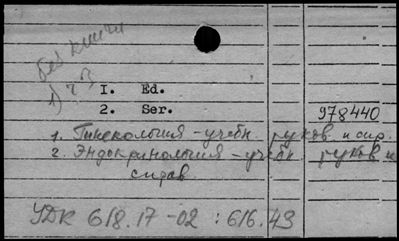 без книги
1) 2 В
1. Ed.
2. Ser.
978440
1. Гинекология - учебн. руков. и спр.
2. Эндокринология - учебн руков и
справ
УДК 618.17-02 : 616.43